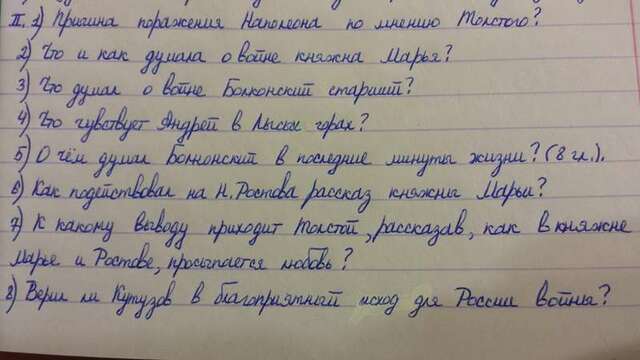 II. 1) Причина поражения Наполеона по мнению Толстого?
2) Что и как думала о войне княжна Марья?
3) Что думал о войне Болконский старший?
4) Что чувствует Андрей в Лысых горах?
5) О чём думал Болконский в последние минуты жизни? (8 гл.).
6) Как подействовал на Н. Ростова рассказ княжны Марьи?
7) К какому выводу приходит Толстой, рассказав, как в княжне
Марье и Ростове, просыпается любовь?
8) Верил ли Кутузов в благоприятный исход для России войны?